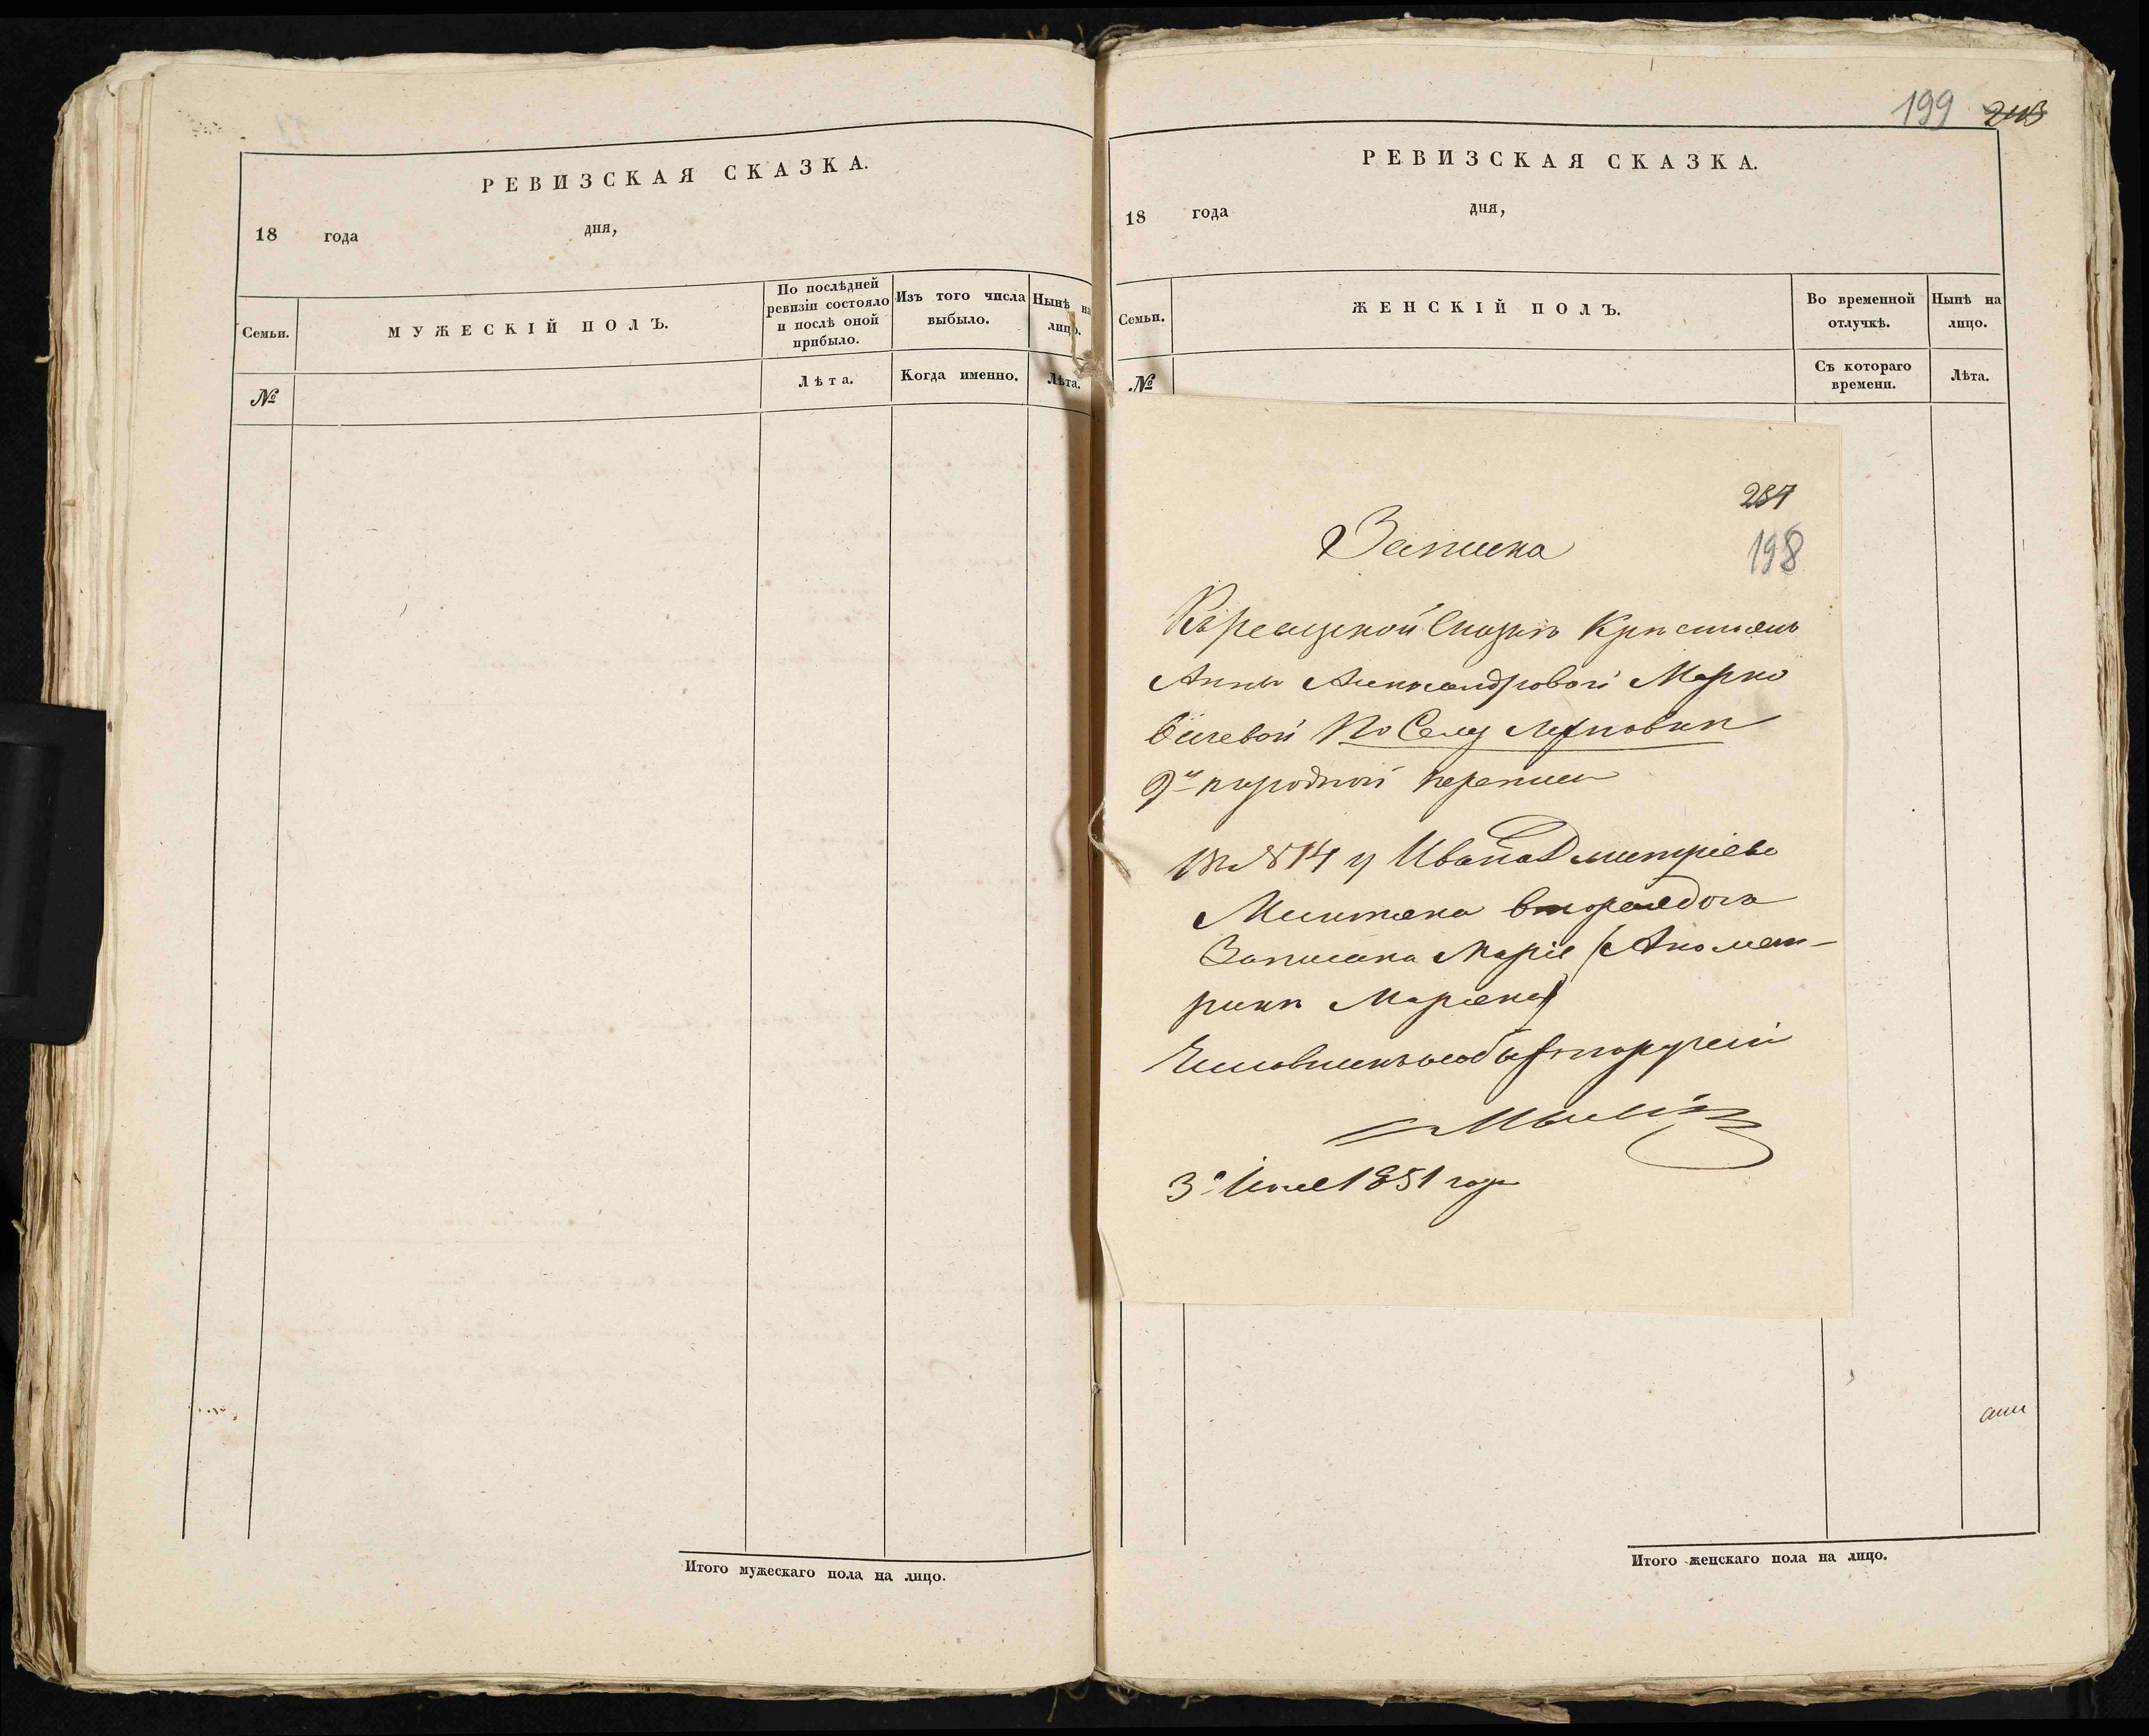 РЕВИЗСКАЯ СКАЗКА.
18 года дня,
Семьи.
МУЖЕСКІЙ ПОЛЪ.
По послѣдней ревизіи состояло и послѣ оной прибыло.
Изъ того числа выбыло.
Нынѣ на лицо.
№
Лѣта.
Когда именно.
Лѣта.
Итого мужескаго пола на лицо.
199
РЕВИЗСКАЯ СКАЗКА.
18 года дня,
Семьи.
ЖЕНСКІЙ ПОЛЪ.
Во временной отлучкѣ.
Нынѣ на лицо.
№
Съ котораго времени.
Лѣта.
287
198
Записка
Къ ревизской Сказкѣ Крестьянъ
Анны Александровой Марко
вичевой По Селу
9й народной переписи
Въ № 14 у Ивана Дмитріева
вторая дочь
Записана Марія (А по мет-
рикѣ Марьяна)
Чиновникъ особыхъ порученій
3е Іюля 1851 года
Итого женскаго пола на лицо.